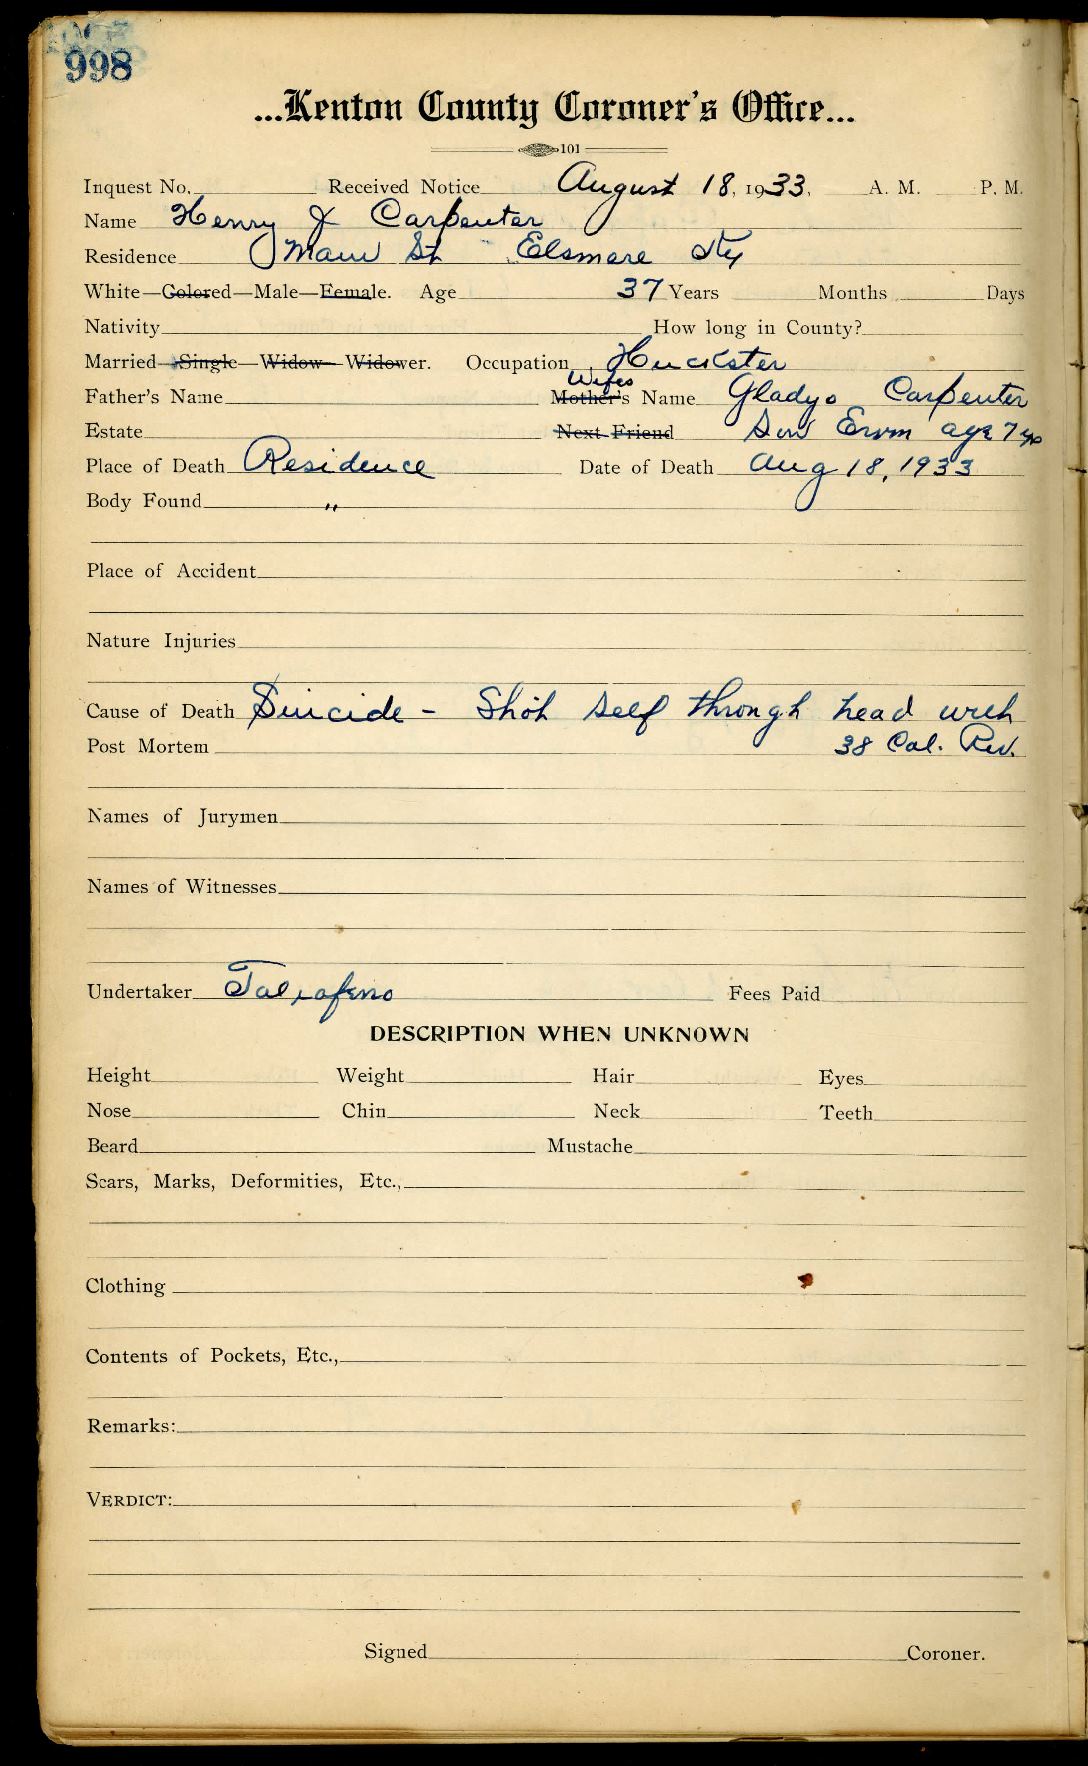 998
...Kenton County Coroner's Office...
101
Inquest No. Received Notice August 18, 1933, A. M. P. M.
Name Henry J Carpenter
Residence Main St Elsmere Ky
White—Colored—Male—Female. Age 37 Years Months Days
Nativity How long in County?
Married—Single—Widow—Widower. Occupation Huckster
Wifes
Father's Name Mother's Name Gladys Carpenter
Estate Next Friend Son age 7 yrs
Place of Death Residence Date of Death Aug 18, 1933
Body Found "
Place of Accident
Nature Injuries
Cause of Death Suicide - Shot self through head with
Post Mortem 38 Cal. Rev.
Names of Jurymen
Names of Witnesses
Undertaker Fees Paid
DESCRIPTION WHEN UNKNOWN
Height Weight Hair Eyes
Nose Chin Neck Teeth
Beard Mustache
Scars, Marks, Deformities, Etc.,
Clothing
Contents of Pockets, Etc.,
Remarks:
VERDICT:
Signed Coroner.